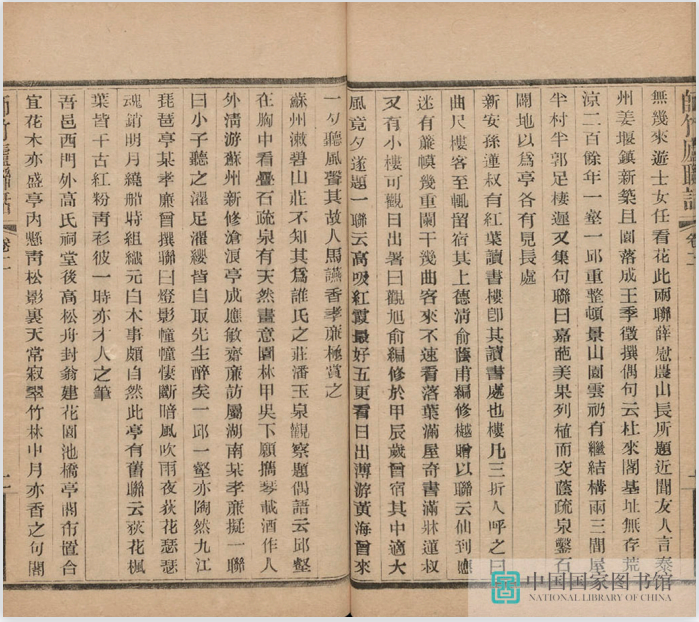 無幾來遊士女任看花此兩聯薛慰農山長所題近聞友人言泰
州姜堰鎮新築且園落成王季徵撰偶句云杜來閣基址無存荒
涼二百餘年一壑一邱重整頓景山園雲礽有繼結構兩三間屋
半村半郭足棲遲又集句聯曰嘉葩美果列植而交蔭疏泉鑿石
闢地以為亭各有見長處
新安孫蓮叔有紅葉讀書樓卽其讀書處也樓凡三折人呼之曰
曲尺樓客至輒留宿其上德清俞蔭甫編修樾贈以聯云仙到應
迷有簾幙幾重闌干幾曲客來不速看落葉滿屋奇書滿牀蓮叔
又有小樓可觀日出署曰觀旭俞編修於甲辰歲曾宿其中適大
風竟夕遂題一聯云高吸紅霞最好五更看日出薄游黃海曾來
一夕聽風聲其故人馬讌香孝廉極賞之
蘇州漱碧山莊不知其為誰氏之莊潘玉泉觀察題偶語云邱壑
在胸中看疊石疏泉有天然畫意園林甲吳下願攜琴載酒作人
外清游蘇州新修滄浪亭成應敏齋廉訪屬湖南某孝廉擬一聯
曰小子聽之濯足濯纓皆自取先生醉矣一邱一壑亦陶然九江
琵琶亭某孝廉曾撰聯曰燈影幢幢悽斷暗風吹雨夜荻花瑟瑟
魂銷明月繞船時組織元白本事頗自然此亭有舊聯云荻花楓
葉皆千古紅粉青衫彼一時亦才人之筆
吾邑西門外高氏祠堂後高松舟封翁建花園池橋亭閣布置合
宜花木亦盛亭內懸青松影裏天常寂翠竹林中月亦香之句閣
師竹廬聯話
卷二
中国国家图书馆
NATIONAL LIBRARY OF CHINA